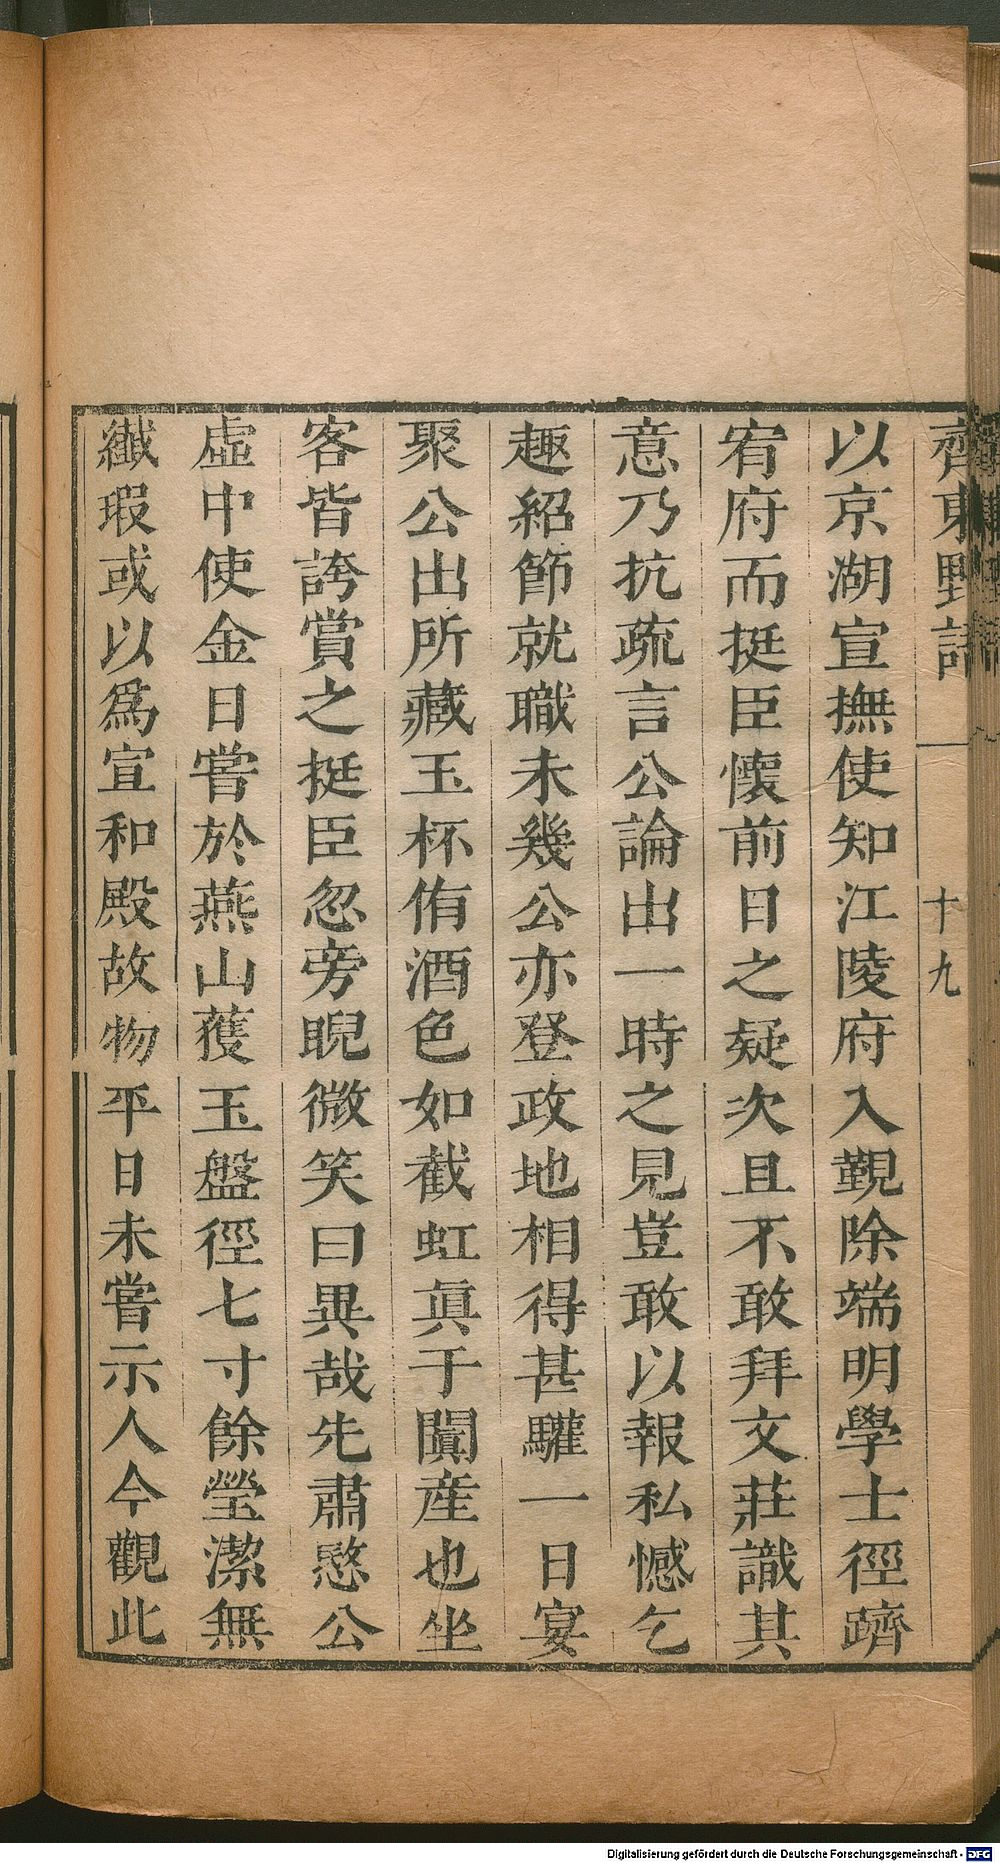 齊東野語
十九
以京湖宣撫使知江陵府入覲除端明學士徑躋
宥府而挺臣懷前日之疑次且不敢拜文莊識其
意乃抗疏言公論出一時之見豈敢以報私憾乞
趣紹節就職未幾公亦登政地相得甚驩一日宴
聚公出所藏玉杯侑酒色如截虹眞于闐産也坐
客皆誇賞之挺臣忽旁睨微笑曰異哉先肅愍公
虛中使金日嘗於燕山獲玉盤徑七寸餘瑩潔無
纎瑕或以爲宣和殿故物平日未嘗示人今觀此
Digitalisierung gefördert durch die Deutsche Forschungsgemeinschaft - DFG